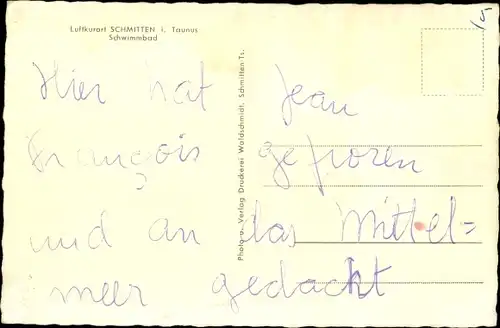 Luftkurort SCHMITTEN i. Taunus
Schwimmbad
15
Photo u. Verlag Druckerei Waldschmidt, Schmitten-Ts.
Hier hat Jean
François gefroren
und an das Mittel=
meer gedacht